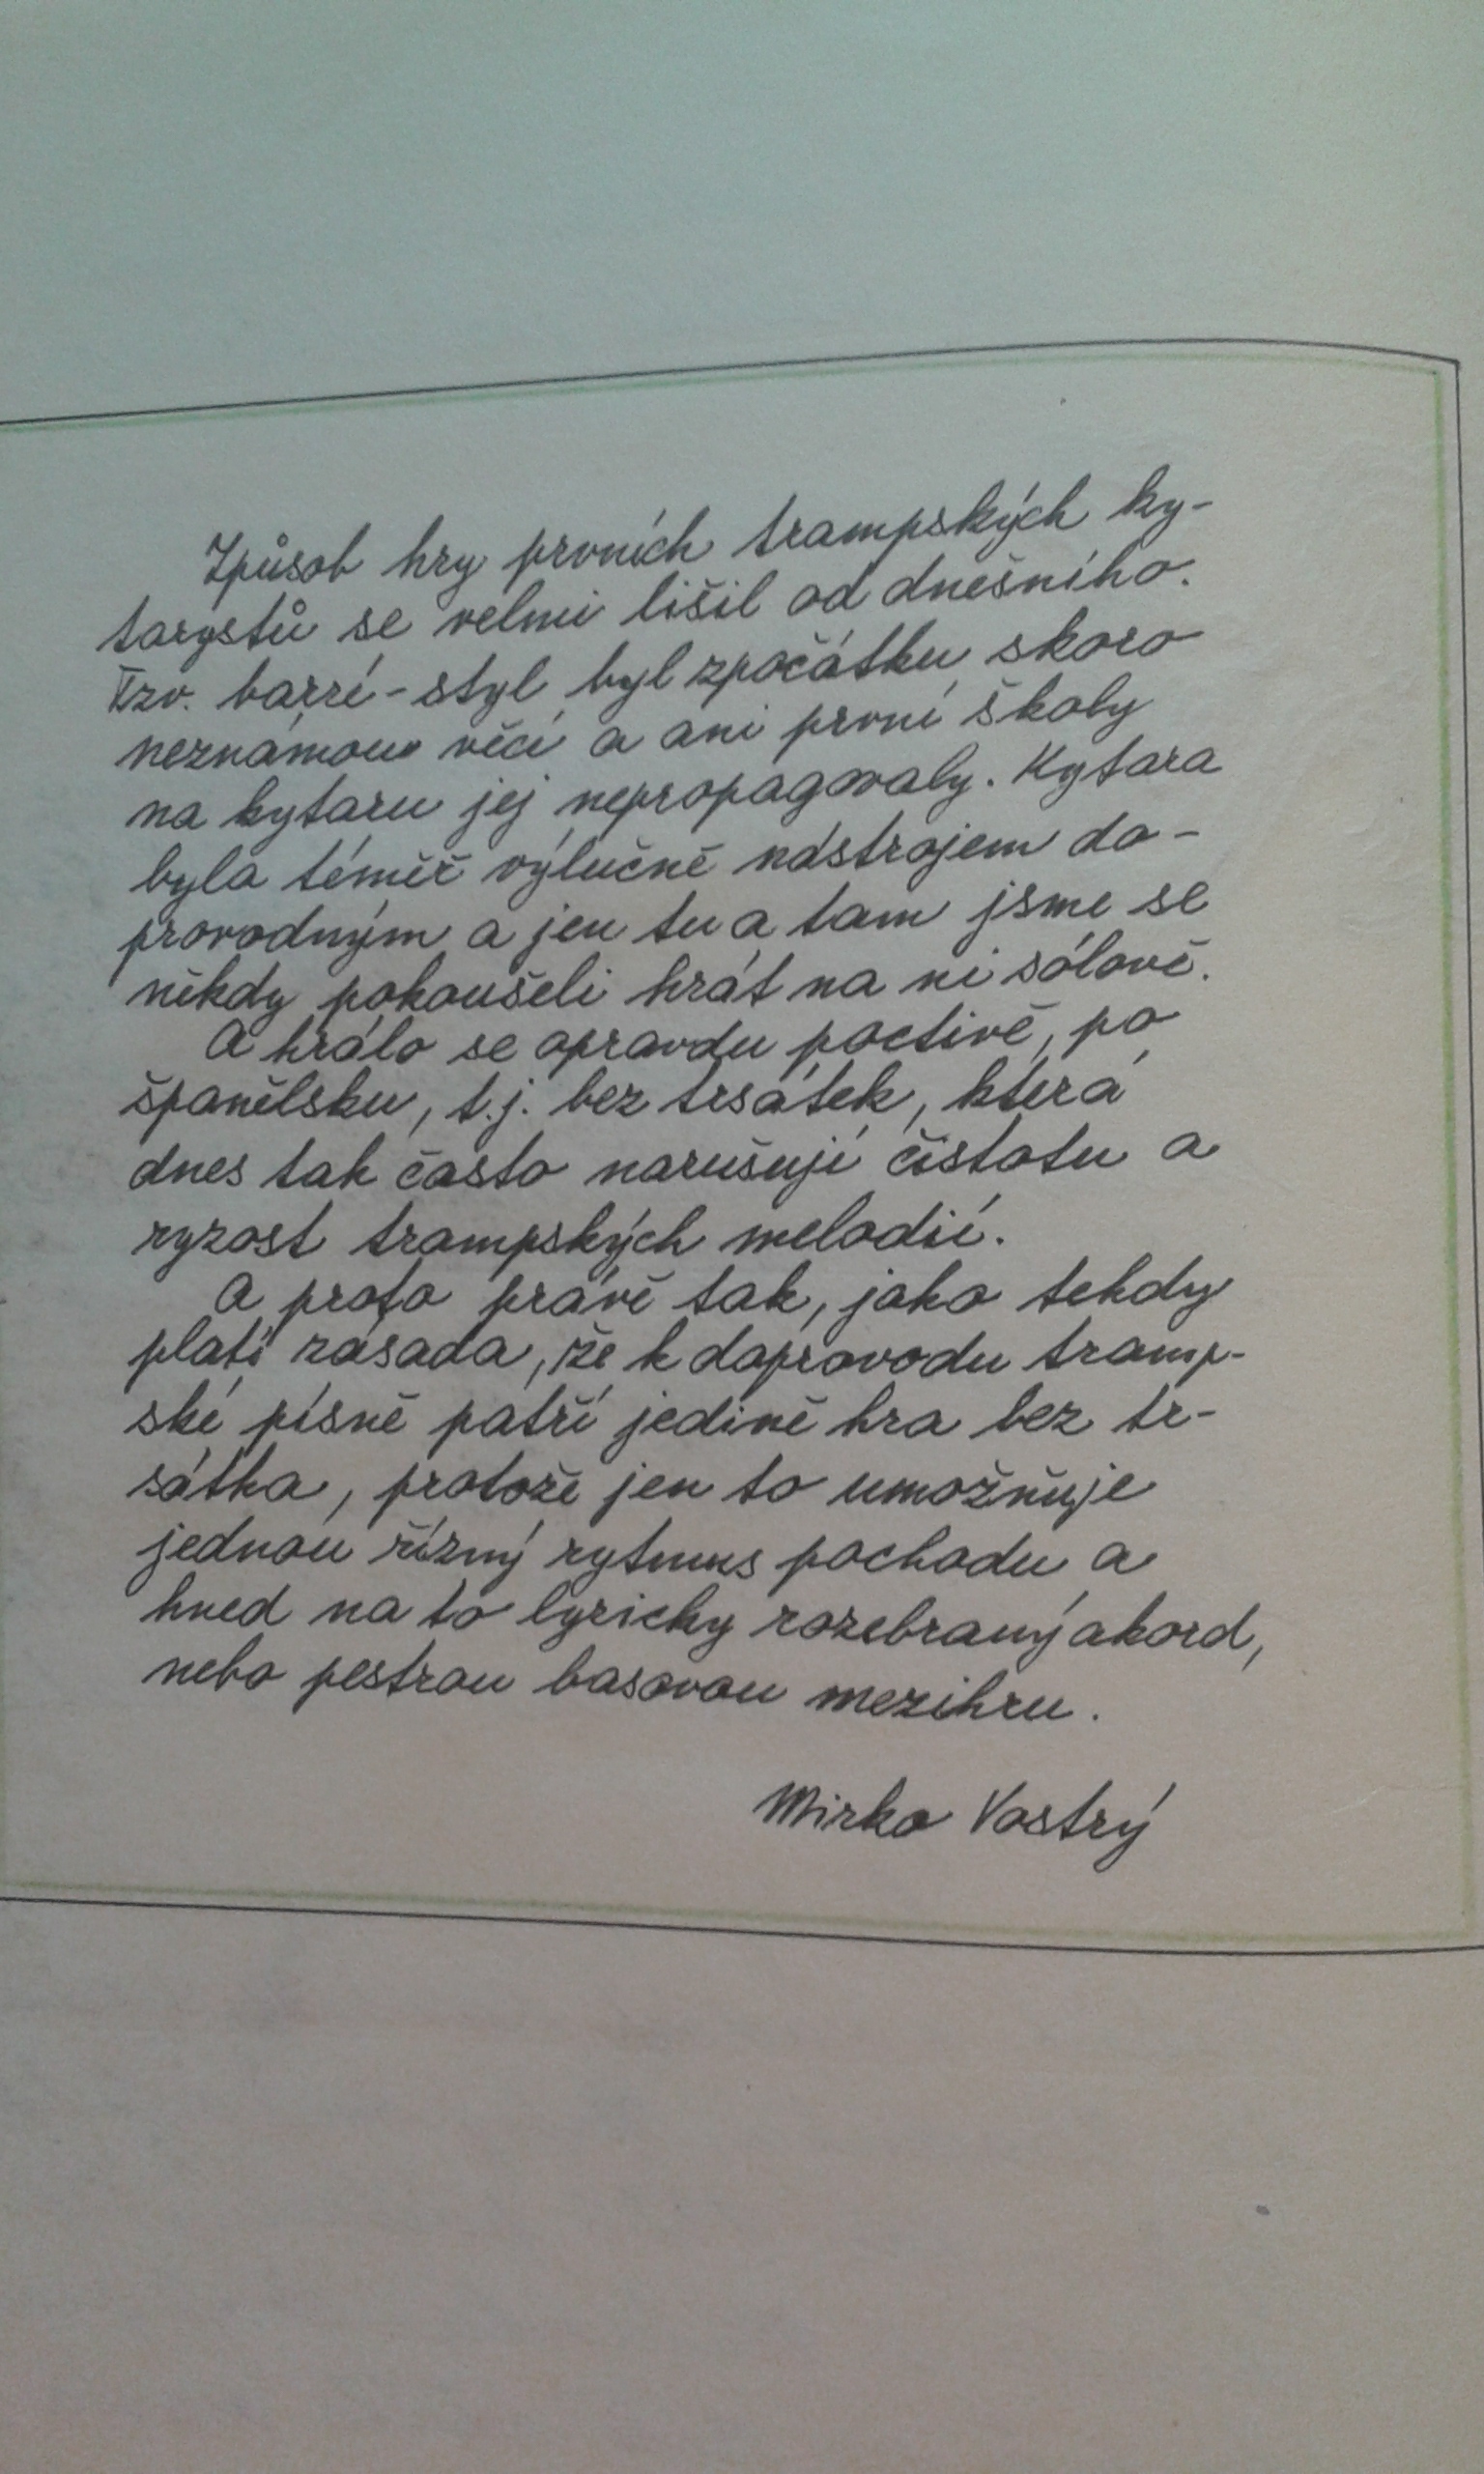 Způsob hry prvních trampských ky-
tarystů se velmi lišil od dnešního.
Tzv. barré-styl byl zpočátku skoro
neznámou věcí a ani první školy
na kytaru jej nepropagovaly. Kytara
byla téměř výlučně nástrojem do-
provodným a jen tu a tam jsme se
někdy pokoušeli hrát na ni sólově.
A hrálo se opravdu poctivě, po
španělsku, t.j. bez trsátek, která
dnes tak často narušují čistotu a
ryzost trampských melodií.
A proto právě tak, jako tehdy
platí zásada, že k doprovodu tramp-
ské písně patří jedině hra bez tr-
sátka, protože jen to umožňuje
jednou řízný rytmus pochodu a
hned na to lyricky rozebraný akord,
nebo pestrou basovou mezihru.
Mirko Vostrý